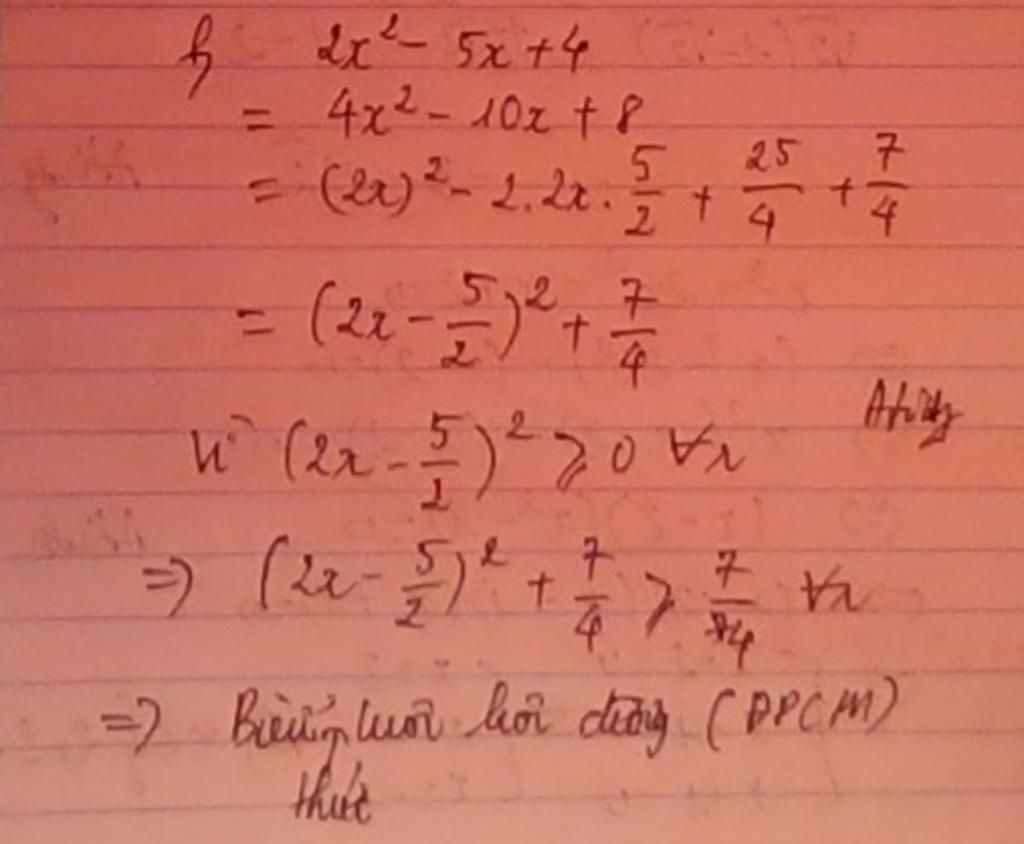 2x² - 5x + 4
= 4x² - 10x + 8
= (2x)² - 2.2x. 5/2 + 25/4 + 7/4
= (2x - 5/2)² + 7/4
Vì (2x - 5/2)² ⩾ 0 ∀x
=> (2x - 5/2)² + 7/4 ⩾ 7/4 ∀x
=> Biểu luôn luôn dương (ĐPCM)
thức